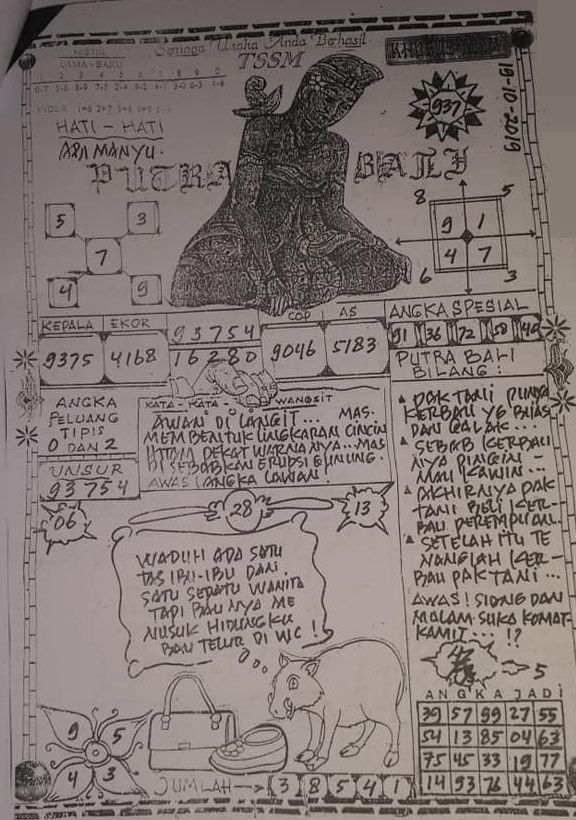 MISTIK
Semoga Usaha Anda Berhasil
LAMA - BARU
TSSM
1 2 3 4 5 6 7 8 9 0
INDEX
937
19-10-2019
HATI - HATI
ABIMANYU.
PUTRA BALI
5 3
7
4 9
8 5
9 1
4 7
6 3
KEPALA EKOR
9375 4168
93754
16280
COP AS
9046 5183
ANGKA SPESIAL
91 36 72 58 40
PUTRA BALI
BILANG :
ANGKA
PELUANG
TIPIS
0 DAN 2
UNSUR
93754
KATA - KATA WANGSIT
AWAN DI LANGIT... MAS.
MEMBENTUK LINGKARAN CINCIN
HITAM PEKAT WARNANYA...MAS
DI SEBABKAN ERUPSI GUNUNG.
AWAS ANGKA LAWAN!
PAK TANI PUNYA
KERBAU YG BUAS
DAN GALAK...
SEBAB KERBAU
NYA PINGIN -
MAU KAWIN...
AKHIRNYA PAK
TANI BELI KER-
BAU PEREMPUAN.
SETELAH ITU TE
NANGLAH KER-
BAU PAK TANI...
AWAS! SIANG DAN
MALAM SUKA KOMAT-
KAMIT... !?
5
06
28
13
WADUH ADA SATU
TAS IBU-IBU DAN
SATU SEPATU WANITA
TAPI BAU NYA ME
NUSUK HIDUNGKU
BAU TELUR DI WC !
9 5
4 3
JUMLAH 3 8 5 4 1
ANGKA JADI
39 57 99 27 55
54 13 85 04 63
75 45 33 19 77
14 93 76 44 63